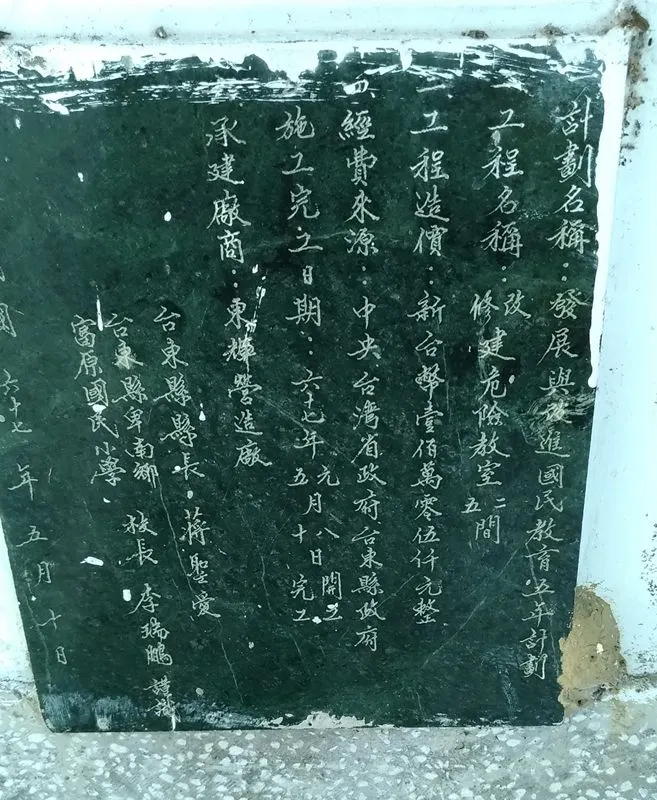 計劃名稱：發展與改進國民教育五年計劃
工程名稱：改修建危險教室二五間
工程造價：新台幣壹佰萬零伍仟元整
四經費來源：中央台灣省政府台東縣政府
施工完立日期：六十七年元月八日開工五月十日完工
承建廠商：東輝營造廠
台東縣縣長 蔣聖愛
台東縣卑南鄉富原國民小學 校長 李瑞鵬 謹識
國 六十七年 五月 十日